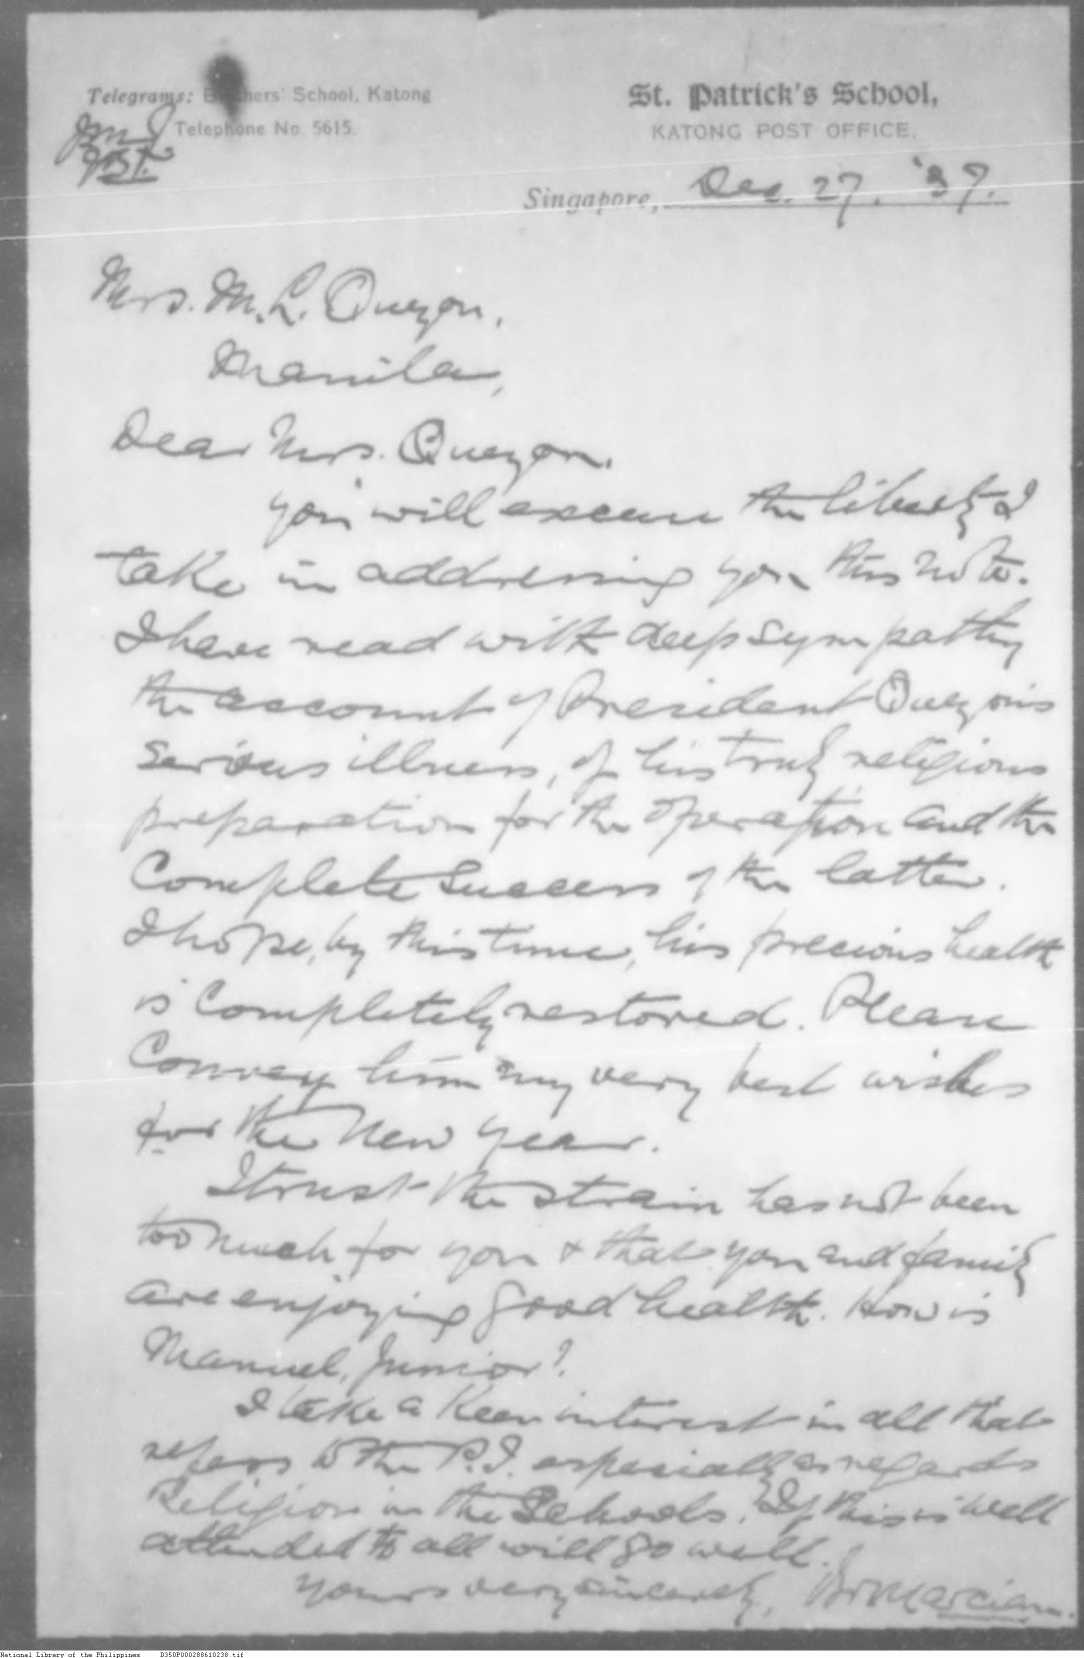 Telegrams: Brothers' School, Katong
Telephone No. 5615.
St. Patrick's School,
KATONG POST OFFICE.
Singapore, Dec. 27. '37.
Mrs. M. L. Quezon,
Manila,
Dear Mrs. Quezon,
You will excuse the liberty I
take in addressing you this note.
I have read with deep sympathy
the account of President Quezon's
serious illness, of his truly religious
preparation for the operation and the
complete success of the latter.
I hope, by this time, his precious health
is completely restored. Please
convey him my very best wishes
for the New Year.
I trust the strain has not been
too much for you & that you and family
are enjoying good health. How is
Manuel, Junior?
I take a keen interest in all that
refers to the P.I. especially as regards
Religion in the Schools. If this is well
attended to all will go well.
Yours very sincerely, Br Marcian.
National Library of the Philippines D350P000288610238.tif